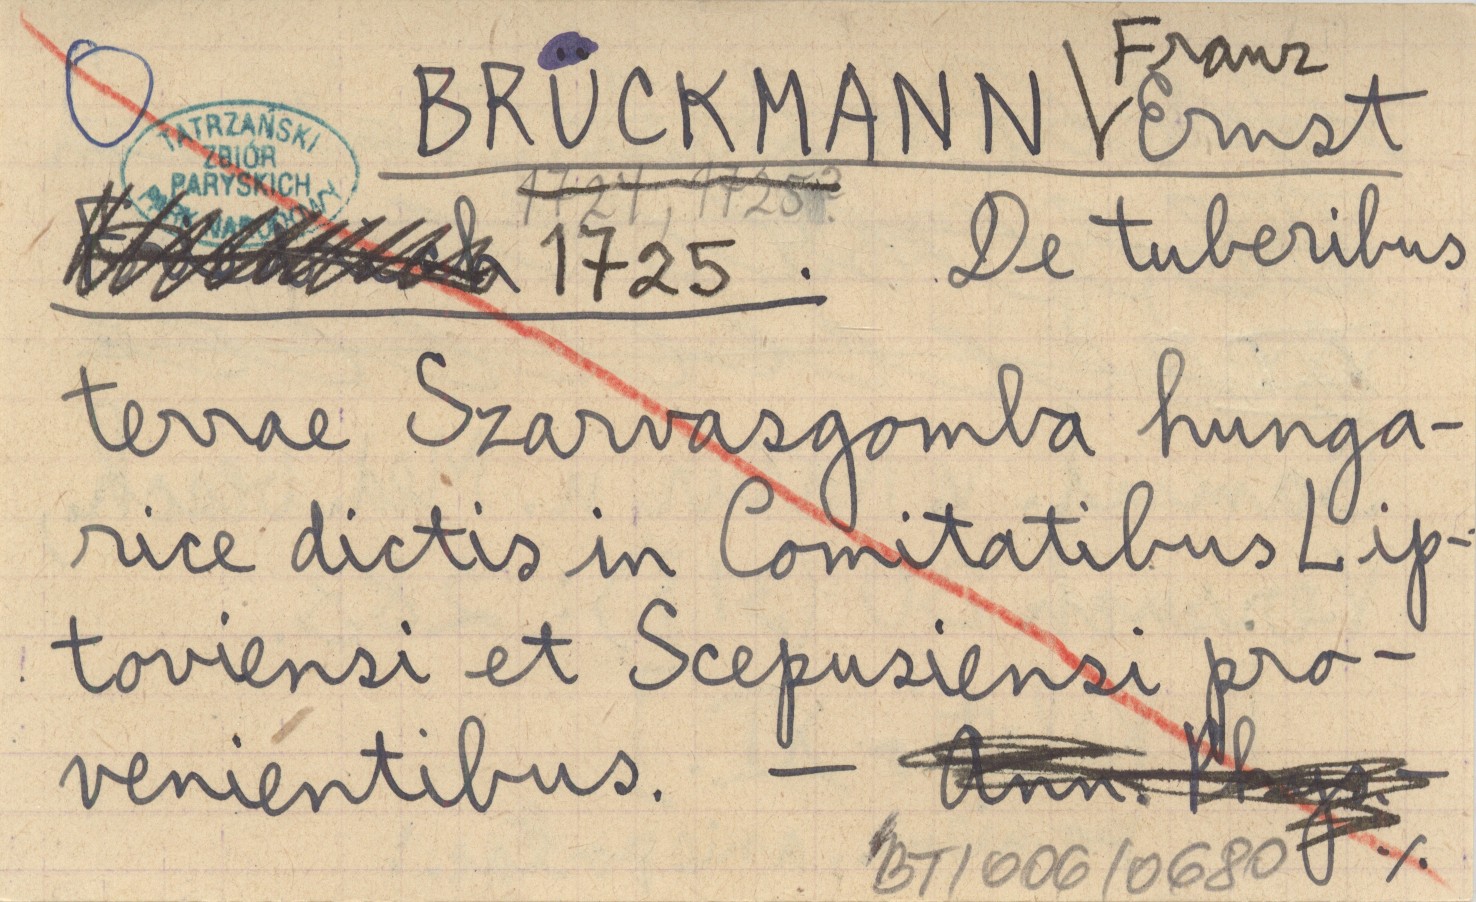 Franz
BRÜCKMANN Ernst
TATRZAŃSKI
ZBIÓR
PARYSKICH
PARK NARODOWY
1724, 1725?
1725. De tuberibus
terrae Szarvasgomba hunga-
rice dictis in Comitatibus Lip-
toviensi et Scepusiensi pro-
venientibus. — Ann. Phys.-
./.
BT/006/0680